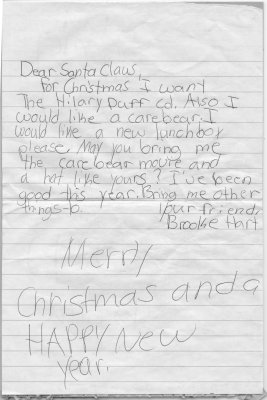 Dear Santa Claus,
for Christmas I want
The Hilary Duff cd. Also I
would like a carebear. I
would like a new lunchbox
please. May you bring me
the care bear movie and
a hat like yours? I've been
good this year. Bring me other
things to.
your friend,
Brooke Hart
Merry
Christmas and a
HAPPY New
year.